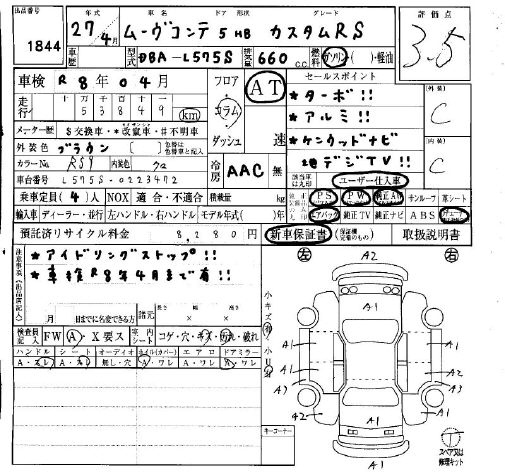 出品番号 年式 車名 ドア 形状 グレード 評価点
1844 27年 4月 ムーヴコンテ 5 HB カスタムRS 3.5
型式 DBA-L575S 排気量 660 c.c. 燃料 ガソリン・( )・軽油
車検 R8年04月 フロア AT セールスポイント 外装 C
走行 十万千百十一
5 3 8 4 9 km コラム ★ターボ!!
★アルミ!!
メーター歴 $交換車・*改竄車・#不明車 ダッシュ 速 ★ケンウッドナビ 内装 C
外装色 ブラウン 地デジTV!!
カラーNo. R59 内装色 冷房 AAC 無 ユーザー仕入車
車台番号 L575S-0223472
乗車定員(4)人 NOX 適合・不適合 積載量 kg PS PW 純正AW サンルーフ 革シート
輸入車 ディーラー・並行 左ハンドル・右ハンドル モデル年式( 年) エアバック 純正TV 純正ナビ ABS
預託済リサイクル料金 8,280円 新車保証書 取扱説明書
注意事項(出品店記入) ★アイドリングストップ!!
★車検R8年4月まで有!!
左 A2 右
月 日までに名変できる方 諸元 長さ 幅 高さ
小キズ有
検査員記入 FW A・X要ス 室内シート コゲ・穴・キズ・汚れ・破れ
ハンドル シート オーディオ ホイル(カバー) エアロ ドアミラー
A・スレ A・ 無し・穴 A・ワレ A・ワレ A・ワレ
A1
A1 A1 A1
A1 A2
A3 A3
A2 A1 A2
A1
キーコーナー
スペア又は
修理キット